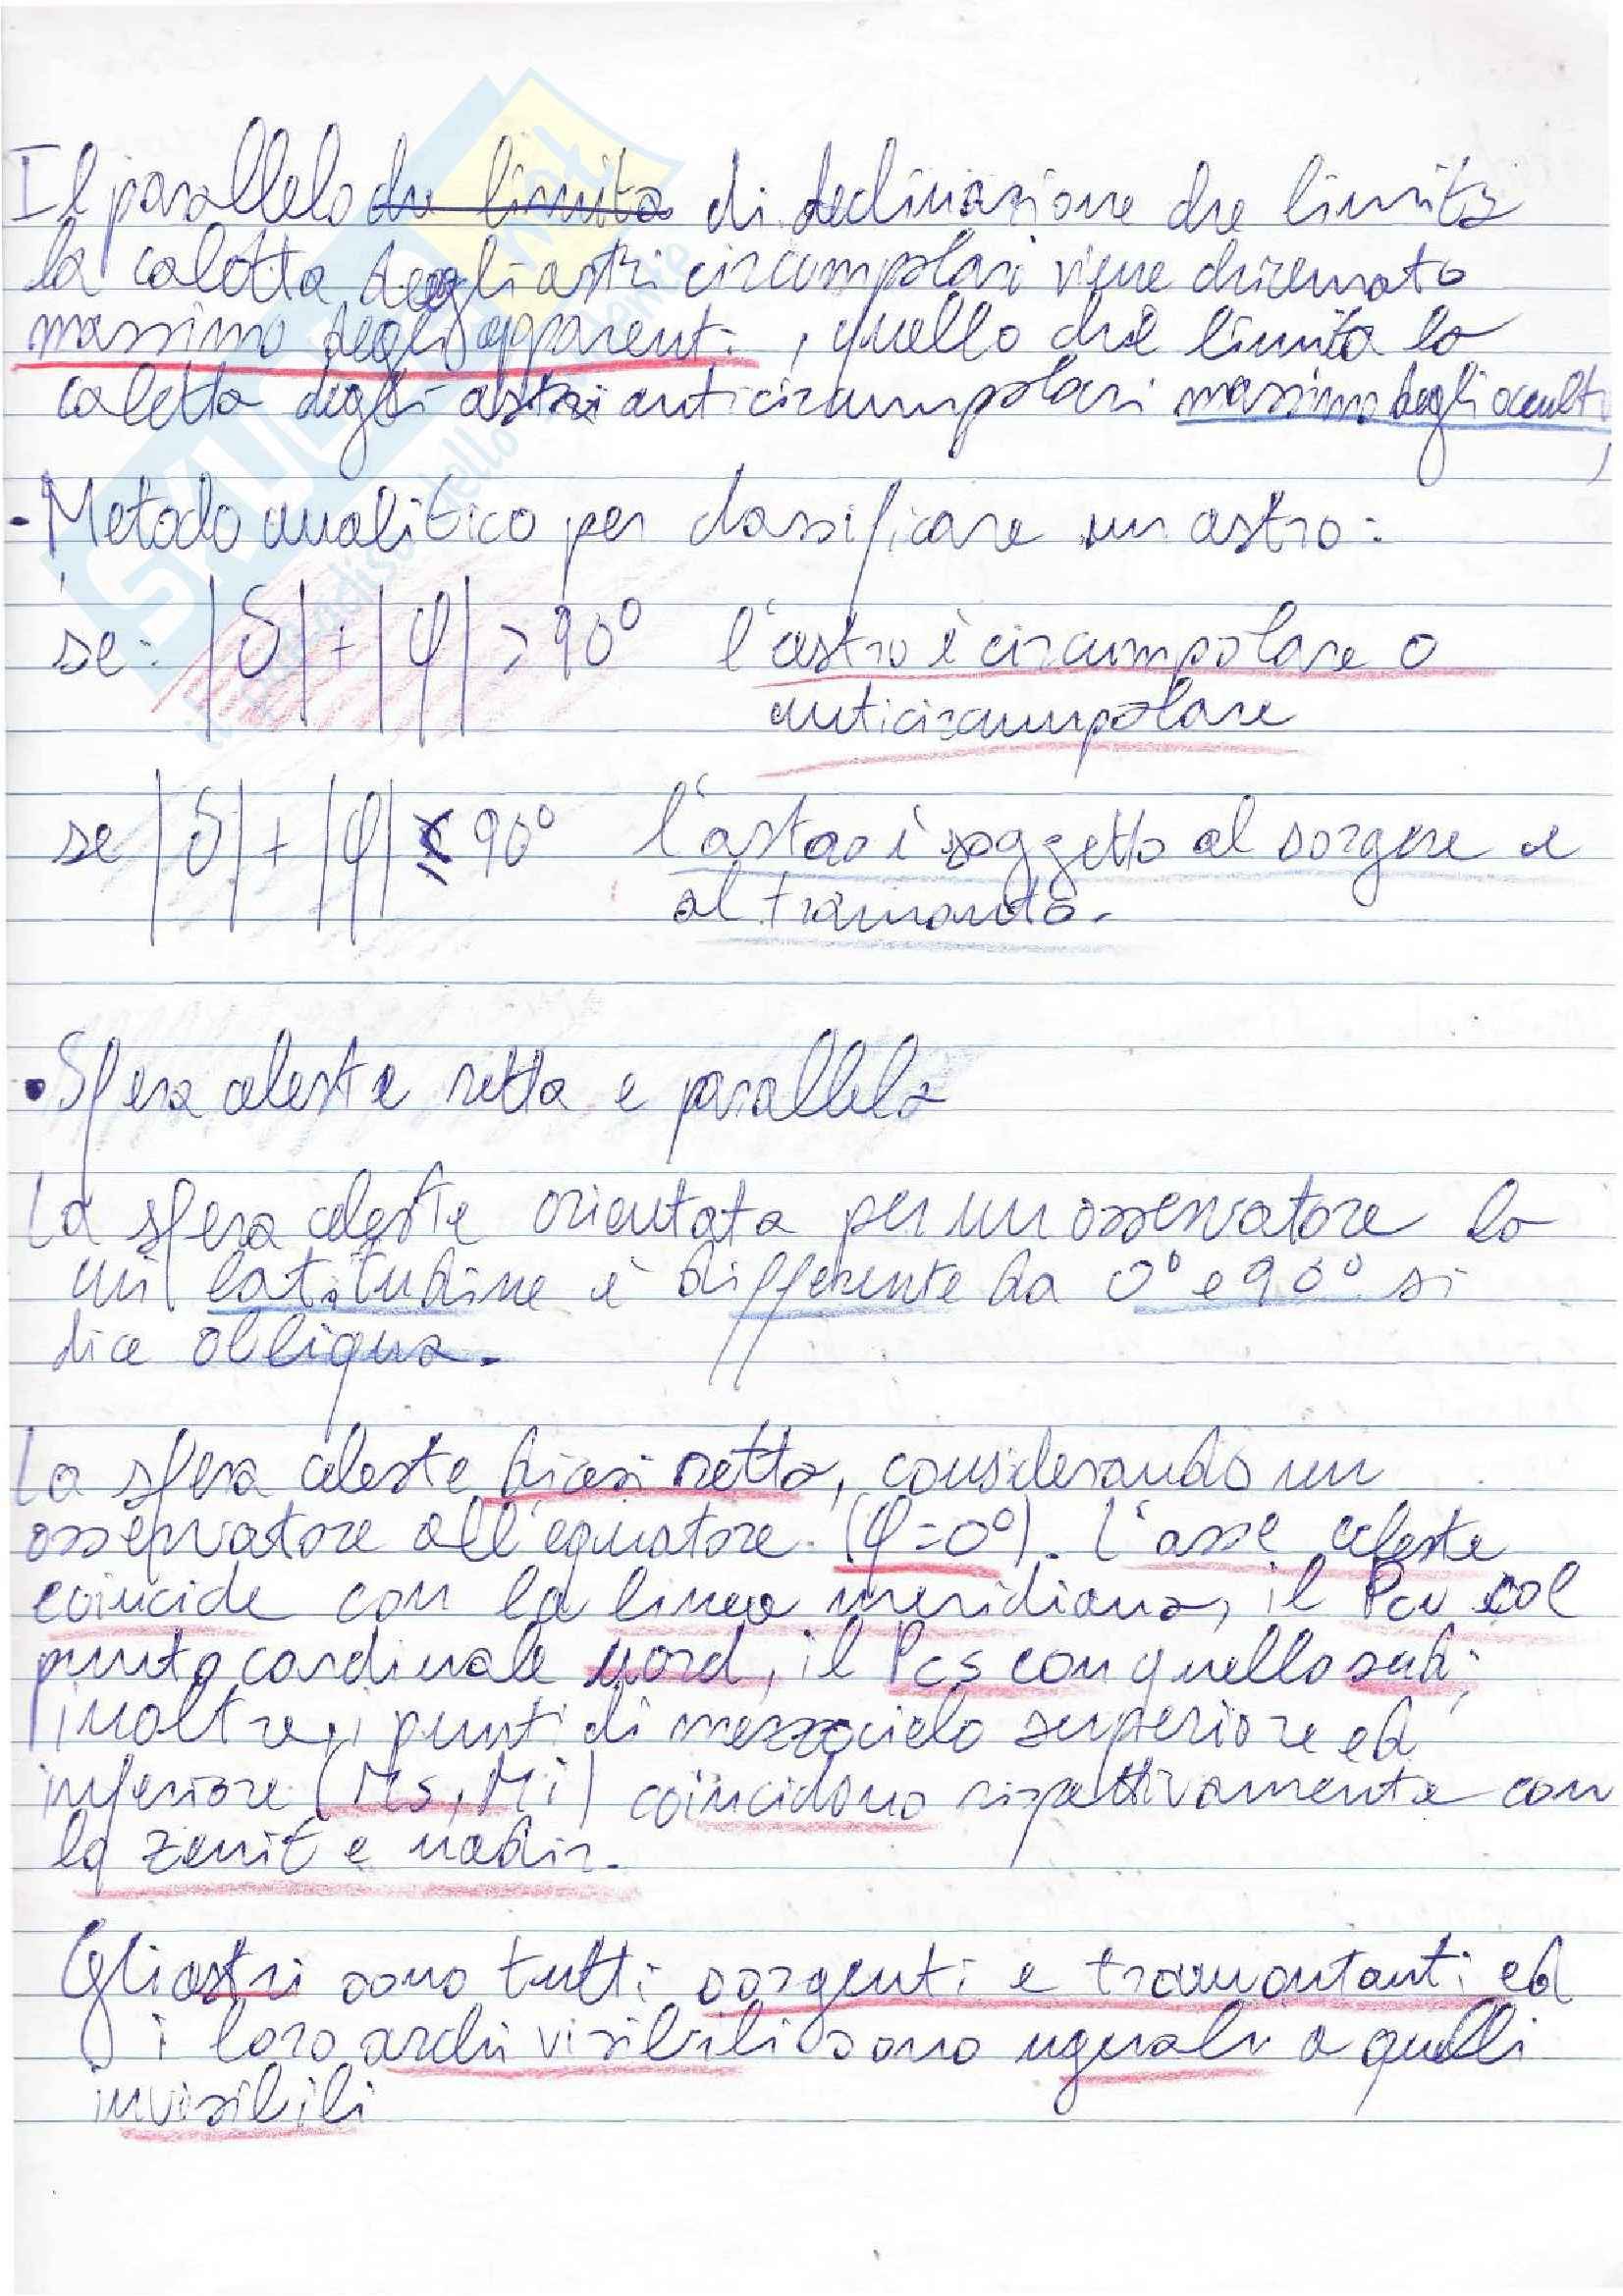 Il parallelo che limita di declinazione che limita
la calotta degli astri circumpolari viene chiamato
massimo degli apparenti, quello che limita la
calotta degli astri anticircumpolari massimo degli occulti,
- Metodo analitico per classificare un astro:
se: |δ|+|φ| > 90° l'astro è circumpolare o
anticircumpolare
se |δ|+|φ| < 90° l'astro è soggetto al sorgere e
al tramonto.
• Sfera celeste retta e parallela
La sfera celeste orientata per un osservatore la
cui latitudine è differente da 0° e 90° si
dice obliqua.
La sfera celeste dicesi retta, considerando un
osservatore all'equatore (φ=0°). L'asse celeste
coincide con la linea meridiana, il Pcn col
punto cardinale nord, il Pcs con quello sud;
inoltre, i punti di mezzocielo superiore ed
inferiore (Ms, Mi) coincidono rispettivamente con
lo zenit e nadir.
Gli astri sono tutti sorgenti e tramontanti ed
i loro archi visibili sono uguali a quelli
invisibili